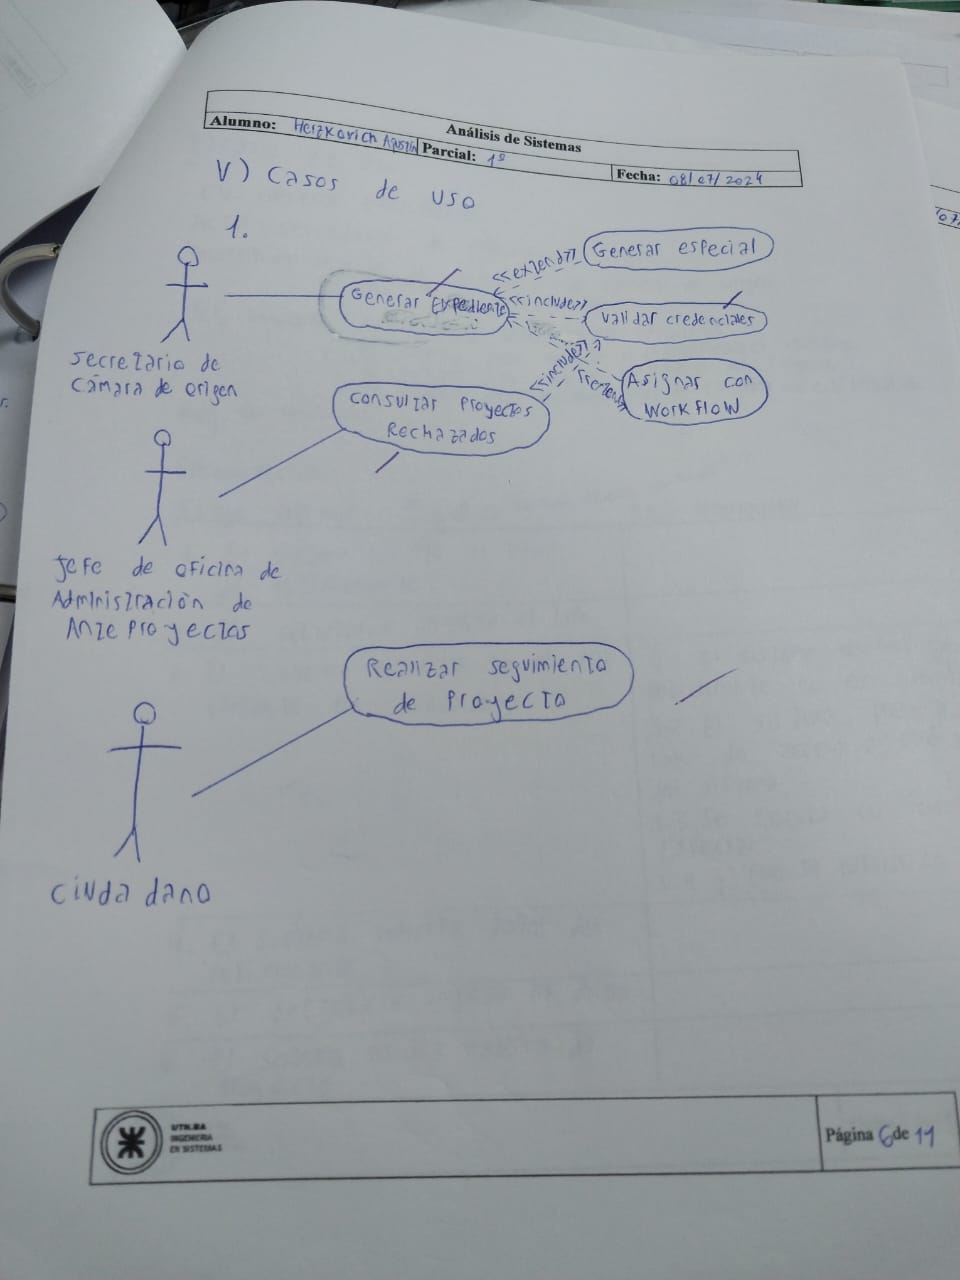 Análisis de Sistemas
Alumno: Herzkovich Agustín Parcial: 1º Fecha: 08/07/2024
V) Casos de uso
1.
Generar especial
<<extend>>
Generar Expediente
<<include>>
Validar credenciales
<<include>>
<<extend>>
Asignar con
Workflow
secretario de
Cámara de origen
Consultar Proyectos
Rechazados
Jefe de oficina de
Administración de
Ante Proyectos
Realizar seguimiento
de Proyecto
Ciudadano
UTN.BA
INGENIERIA
EN SISTEMAS
Página 6 de 11